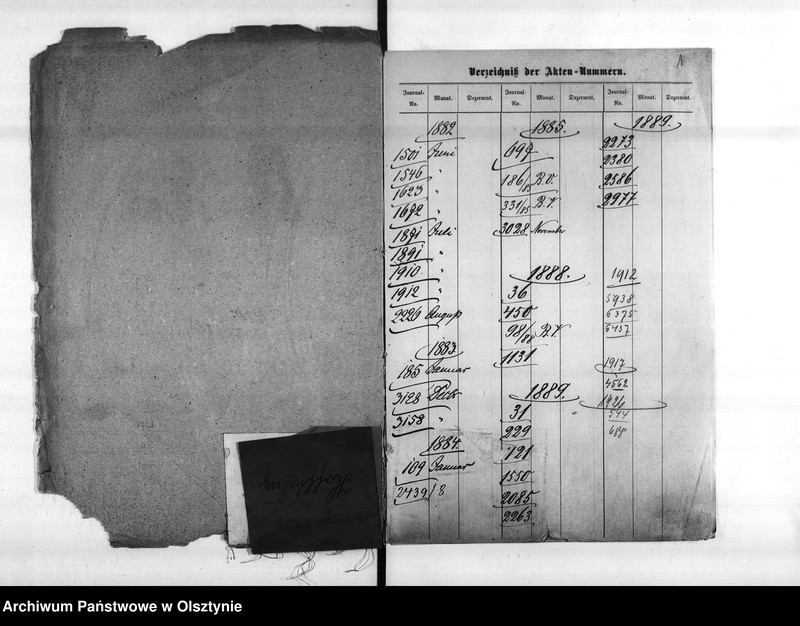 1
Verzeichniß der Akten-Nummern.
Journal-No. Monat. Dezernent. Journal-No. Monat. Dezernent. Journal-No. Monat. Dezernent.
1882
1501 Juni
1546 "
1623 "
1672 "
1891 Juli
1891 "
1910 "
1912 "
2220 August
1883
185 Januar
3128 Dezbr
3158 "
1884
109 Januar
2439/8
1885.
697
186/85 B.V.
331/85 B.V.
3028 November
1888.
36
450
98/88 B.V.
1131
1889.
31
229
721
1550
2085
2263
1889.
2273
2380
2586
2977
1912
5938
6375
6437
1917
4562
1926
544
Archiwum Państwowe w Olsztynie